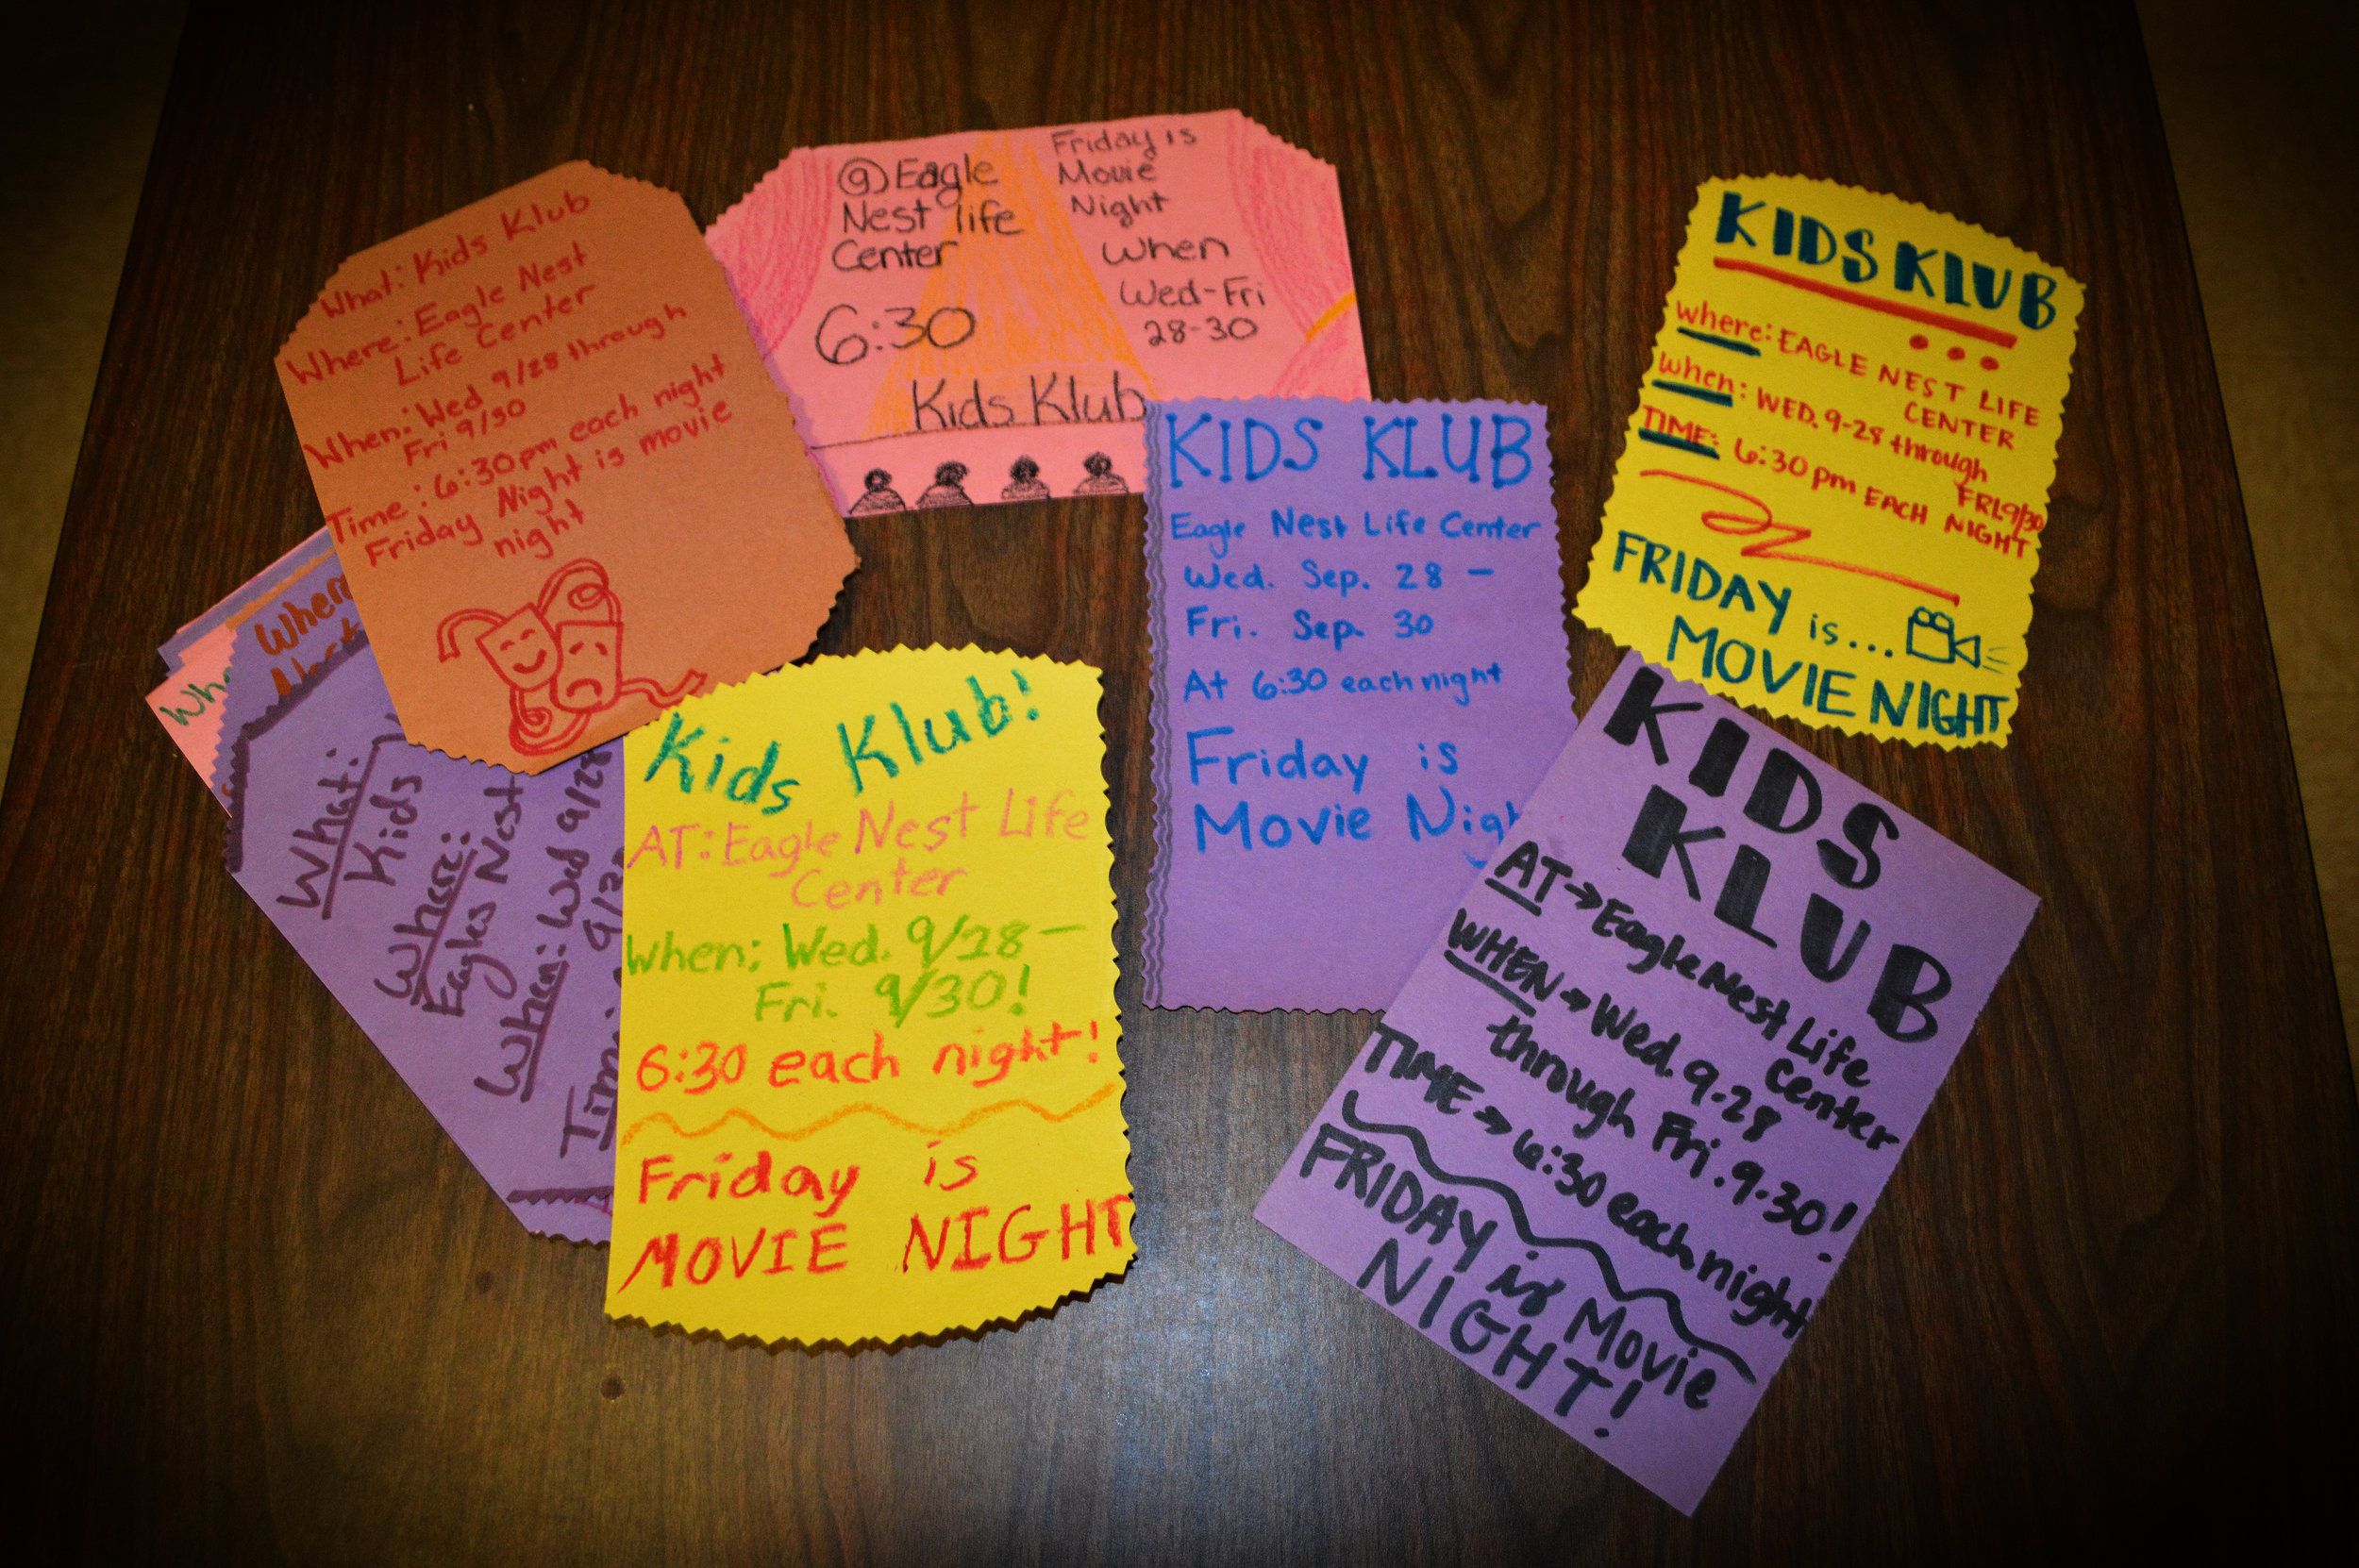 What: Kids Klub
Where: Eagle Nest
Life Center
When: Wed 9/28 through
Fri 9/30
Time: 6:30pm each night
Friday Night is movie
night
@ Eagle
Nest life
Center
6:30
Friday is
Movie
Night
When
Wed-Fri
28-30
Kids Klub
KIDS KLUB
where: EAGLE NEST LIFE
CENTER
when: WED. 9-28 through
FRI. 9/30
TIME: 6:30 pm EACH NIGHT
FRIDAY is...
MOVIE NIGHT
KIDS KLUB
Eagle Nest Life Center
Wed. Sep. 28 -
Fri. Sep. 30
At 6:30 each night
Friday is
Movie Nigh
When
What:
Kids
Where:
Eagles Nest
When: Wed 9/28
Time:
Kids Klub!
AT: Eagle Nest Life
Center
When: Wed. 9/28 -
Fri. 9/30!
6:30 each night!
Friday is
MOVIE NIGHT
KIDS
KLUB
AT → Eagle Nest Life
Center
WHEN → Wed. 9.28
through Fri. 9.30!
TIME → 6:30 each night
FRIDAY is Movie
NIGHT!